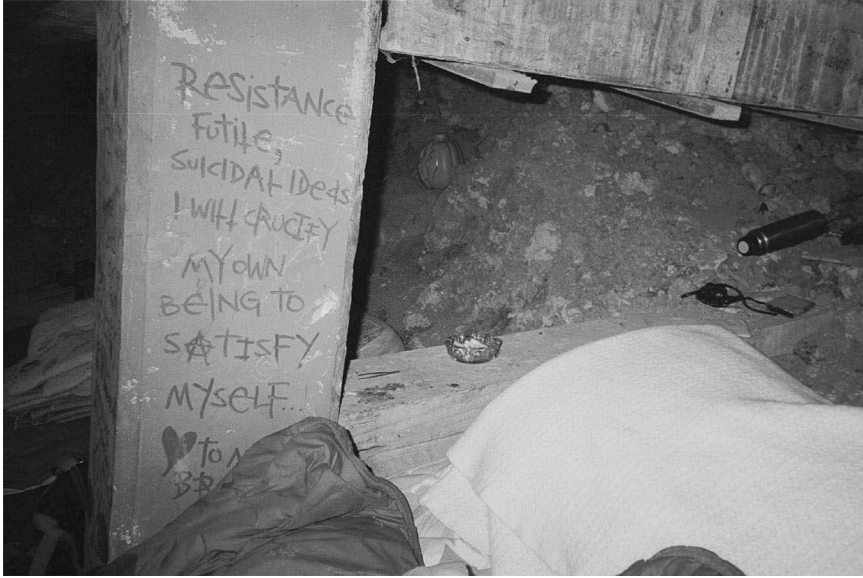 ResistANce
Futile,
SUICIDAL IDeas
I WIll CRUCIFY
MY OWN
BeING TO
SATISFY
MYSELF...
♥ to